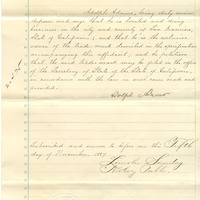 Adolph Adams, being duly sworn
deposes and says that he is located and doing
business in the city and county of San Francisco,
State of California; and that he is the exclusive
owner of the trade mark described in the specification
accompanying this affidavit; and he petitions
that the said trade mark may be filed in the office
of the Secretary of State of the State of California,
in accordance with the law in such cases made and
provided.
Adolph
Subscribed and sworn to before me this Fifth
day of December 1887.
Notary Public